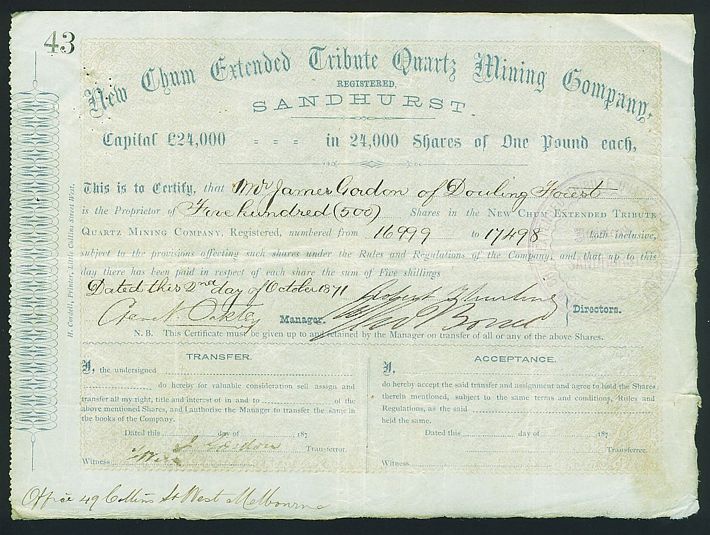 43
New Chum Extended Tribute Quartz Mining Company,
REGISTERED,
SANDHURST.
Capital £24,000 = = = in 24,000 Shares of One Pound each,
This is to Certify, that Mr James Gordon of Dowling Forest
is the Proprietor of Five hundred (500) Shares in the NEW CHUM EXTENDED TRIBUTE
QUARTZ MINING COMPANY, Registered, numbered from 16999 to 17498 both inclusive,
subject to the provisions affecting such shares under the Rules and Regulations of the Company, and that up to this
day there has been paid in respect of each share the sum of Five shillings
Dated this 2nd day of October 1871
Manager.
Directors.
N.B. This Certificate must be given up to and retained by the Manager on transfer of all or any of the above Shares.
TRANSFER.
I, the undersigned
do hereby for valuable consideration sell assign and
transfer all my right, title and interest of in and to of the
above mentioned Shares, and I authorise the Manager to transfer the same in
the books of the Company.
Dated this day of 187
J Gordon Transferror.
Witness
ACCEPTANCE.
I,
do hereby accept the said transfer and assignment and agree to hold the Shares
therein mentioned, subject to the same terms and conditions, Rules and
Regulations, as the said
held the same.
Dated this day of 187
Transferree.
Witness
Office 49 Collins St West Melbourne
Printer, Little Collins Street West.